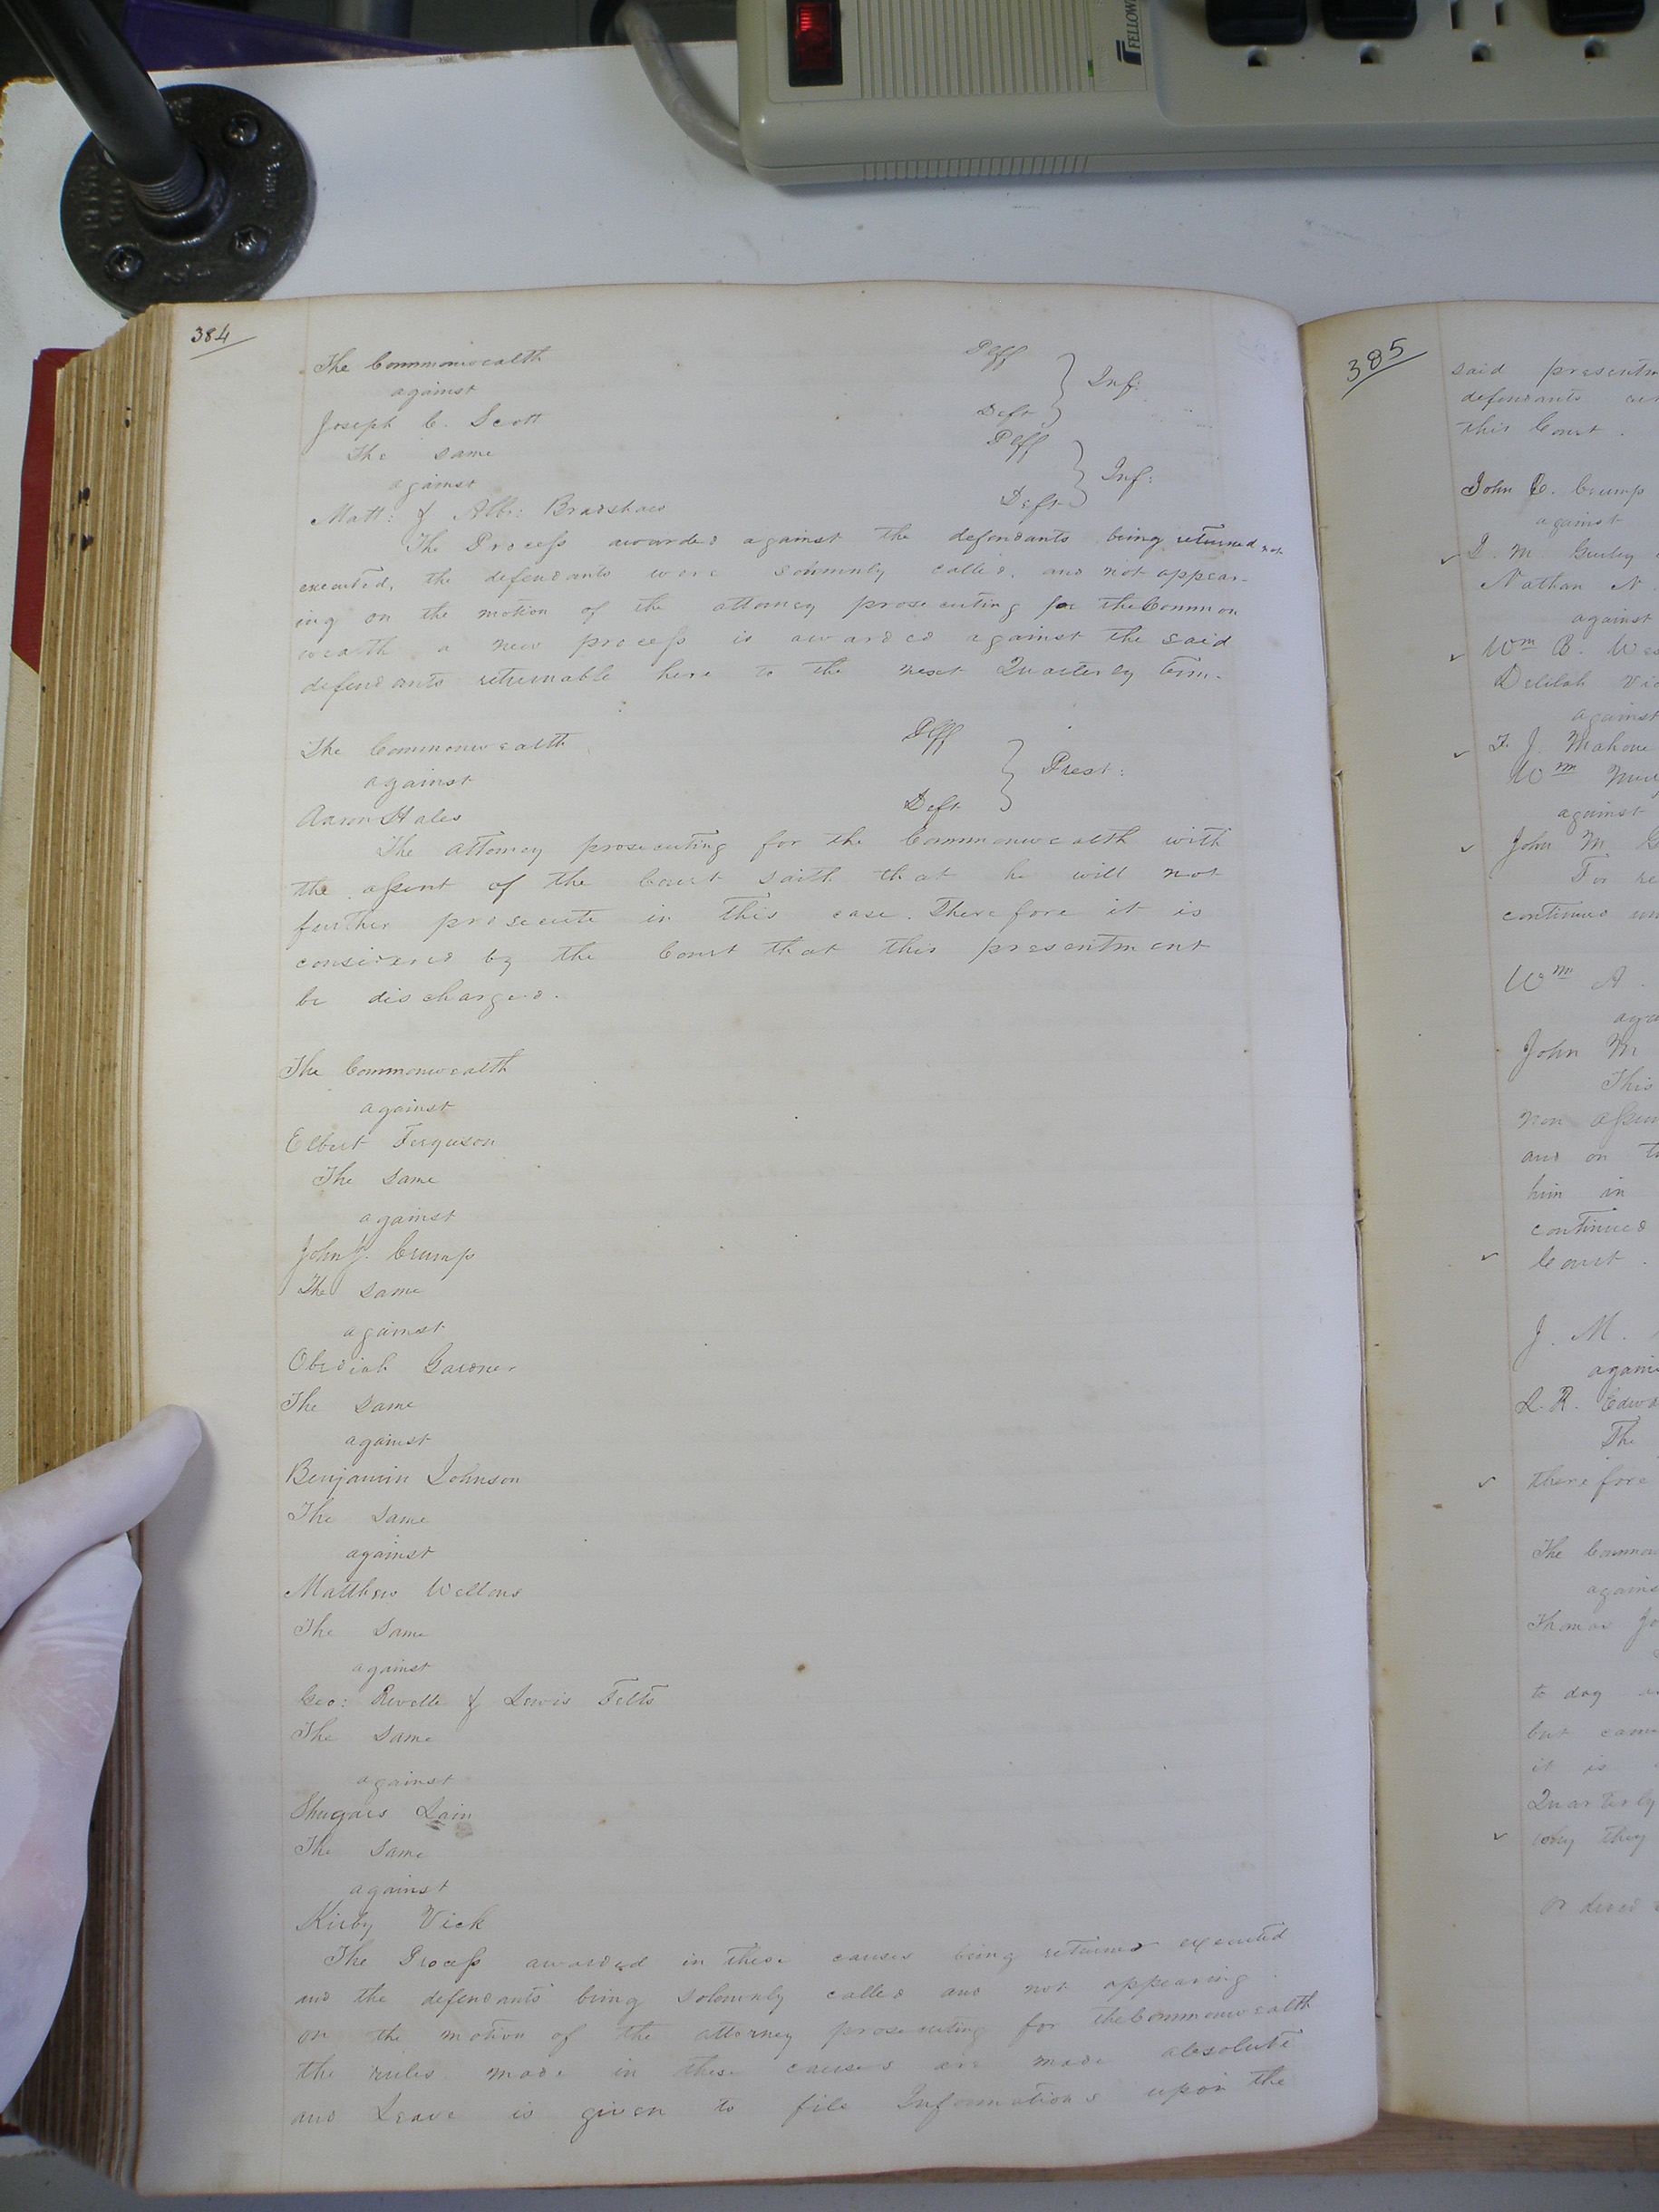 FELLOW
384
The Commonwealth Plff
against } Inf:
Joseph C. Scott Deft
The same Plff
against } Inf:
Matt: & Alb: Bradshaw Deft
The Process awarded against the defendants being returned not
executed, the defendants were solemnly called, and not appear-
ing on the motion of the attorney prosecuting for the Common
wealth a new process is awarded against the said
defendants returnable here to the next Quarterly Term.
The Commonwealth Plff
against } Prest:
Aaron Hales Deft
The attorney prosecuting for the Commonwealth with
the assent of the Court saith that he will not
further prosecute in this case. Therefore it is
considered by the Court that this presentment
be discharged.
The Commonwealth
against
Elbert Ferguson
The same
against
John J. Crump
The same
against
Obediah Gardner
The same
against
Benjamin Johnson
The same
against
Matthew Wellons
The same
against
Geo: Revelle & Lewis Felts
The same
against
Shugars Lain
The same
against
Kirby Vick
The Process awarded in these causes being returned executed
and the defendants being solemnly called and not appearing
on the motion of the attorney prosecuting for the Commonwealth
the rules made in these causes are made absolute
and Leave is given to file Informations upon the
385
said presentm
defendants
this Court.
John E. Crump
against
D. M. Gurley
Nathan N.
against
Wm B. Wes
Delilah Vic
against
T. J. Mahone
Wm
against
John M G
For re
continued un
Wm A.
aga
John M
This
non assum
and on t
him in
continued
Court.
J. M.
again
L. R. Edwa
The
therefore
The Common
agains
Thomas Jo
to day
but came
it is
Quarterly
why they